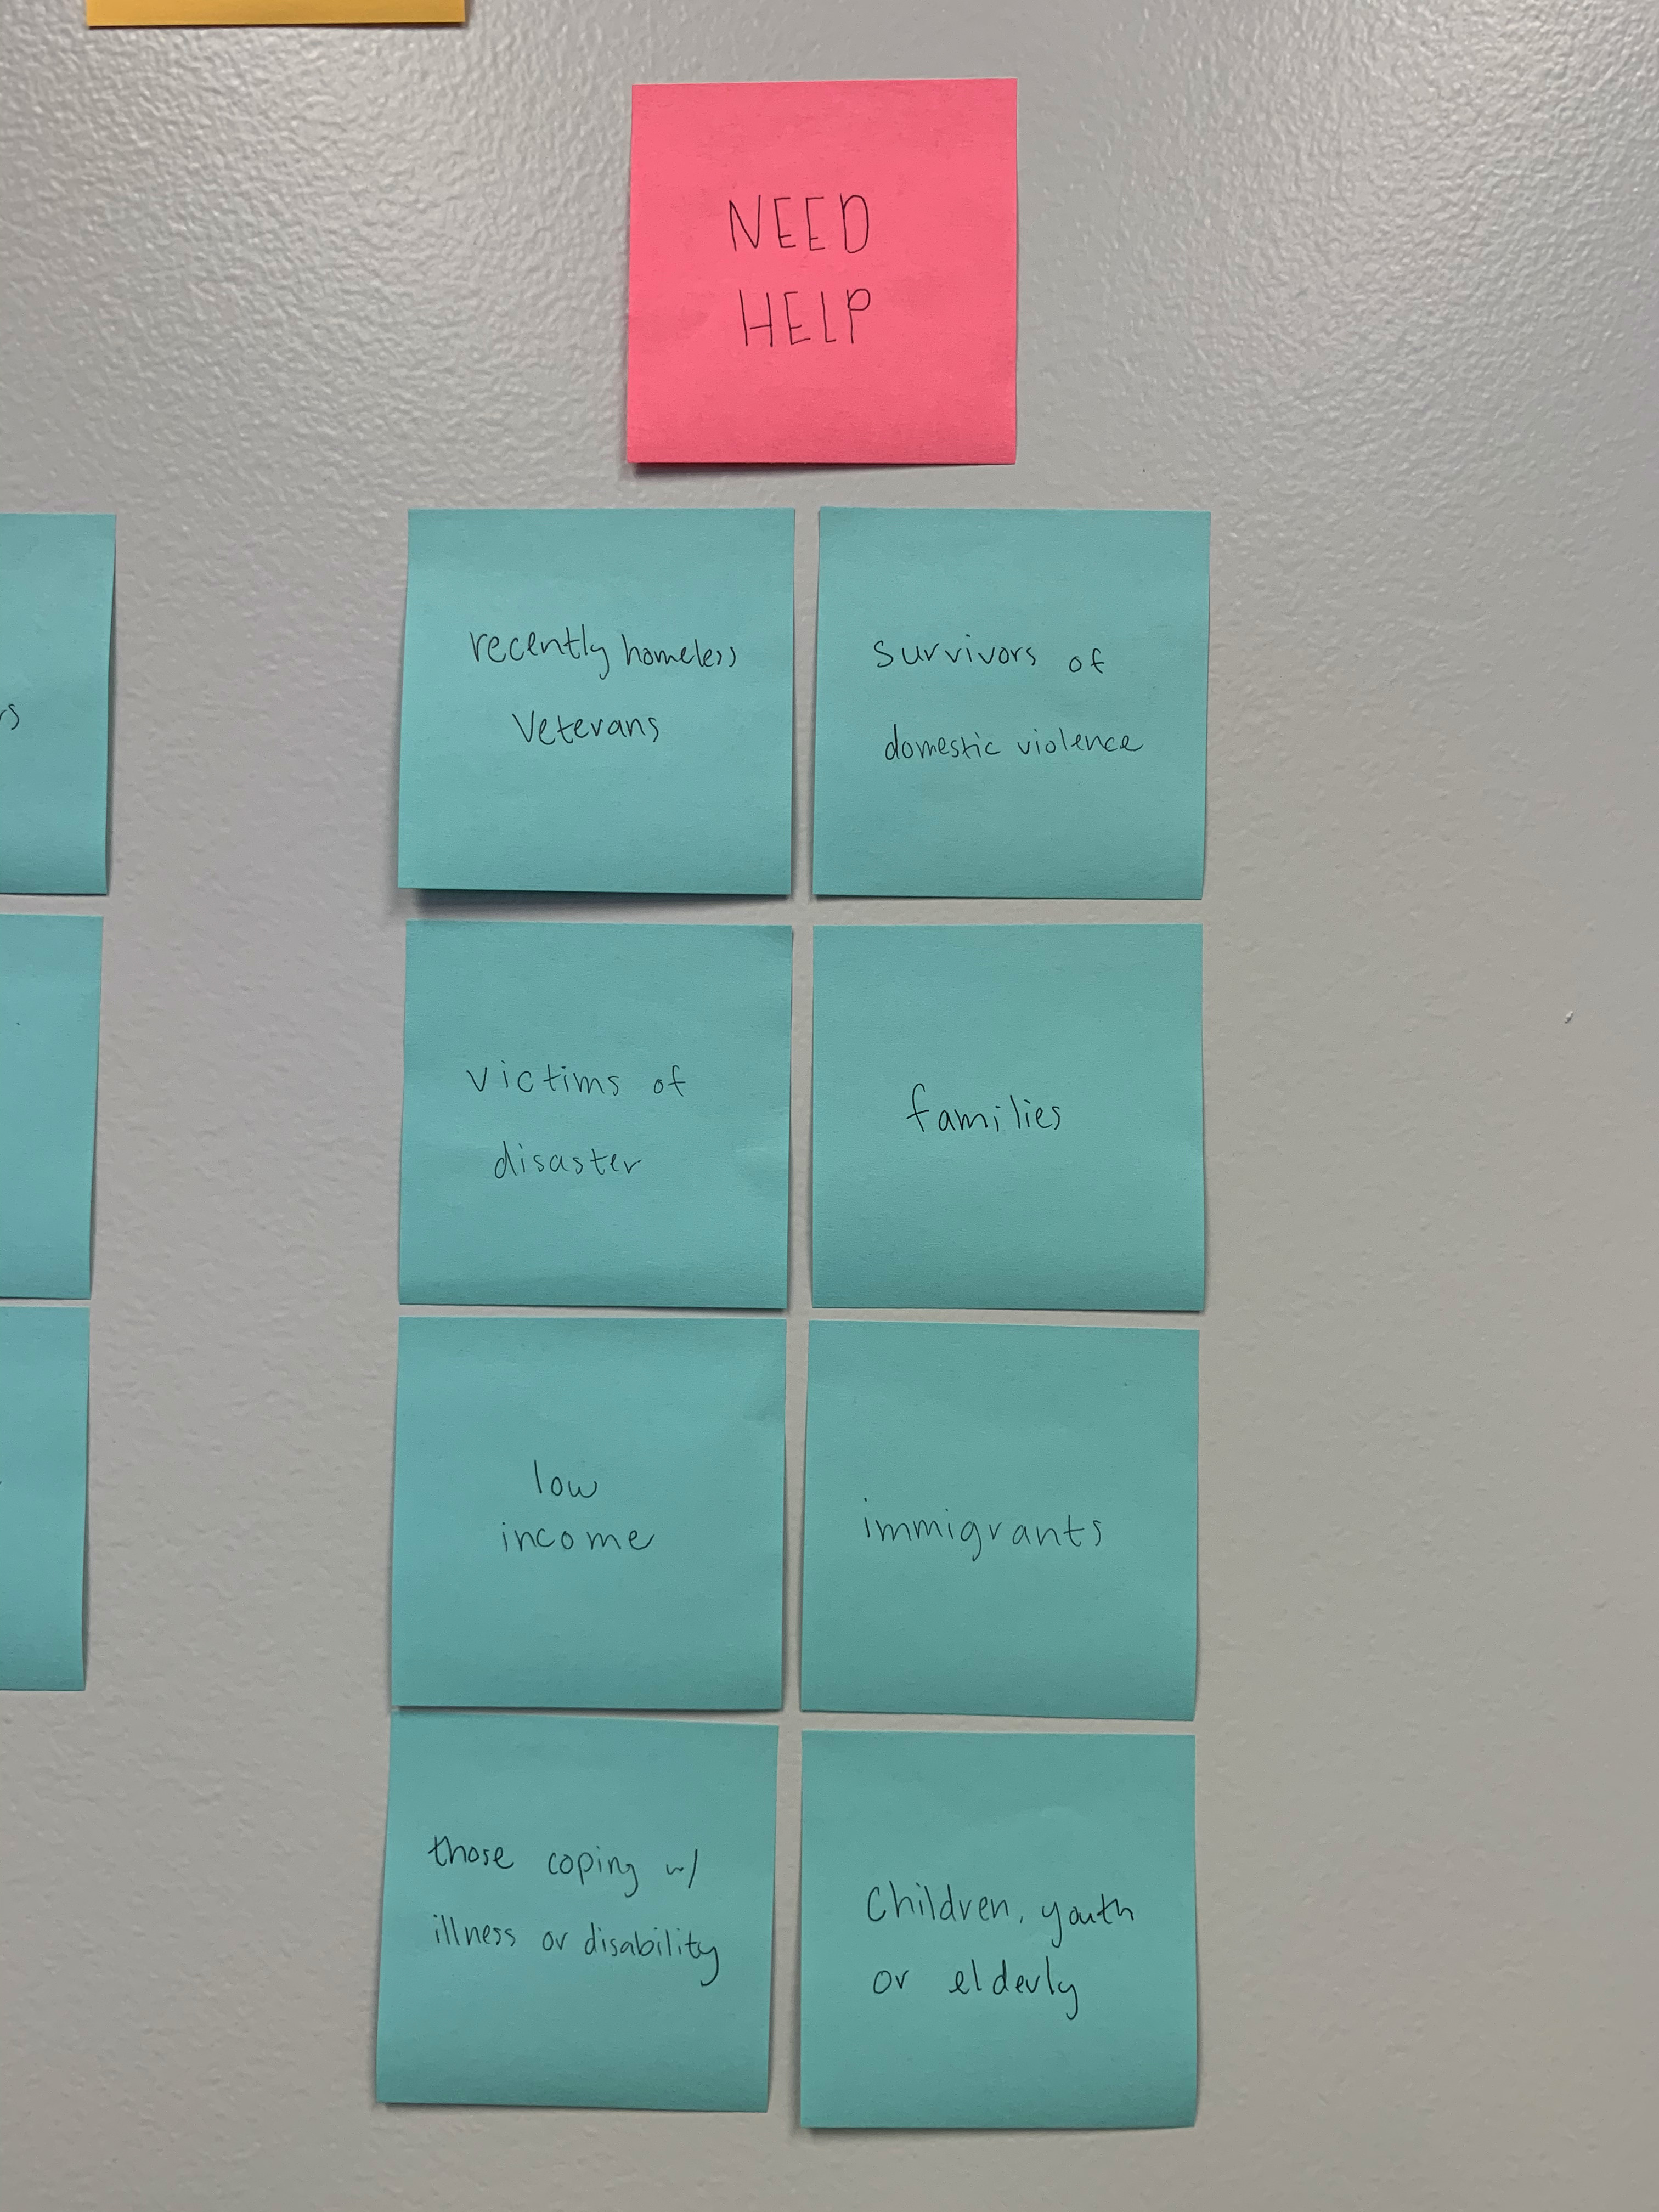 NEED
HELP
recently homeless
Veterans
survivors of
domestic violence
victims of
disaster
families
low
income
immigrants
those coping w/
illness or disability
Children, youth
or elderly